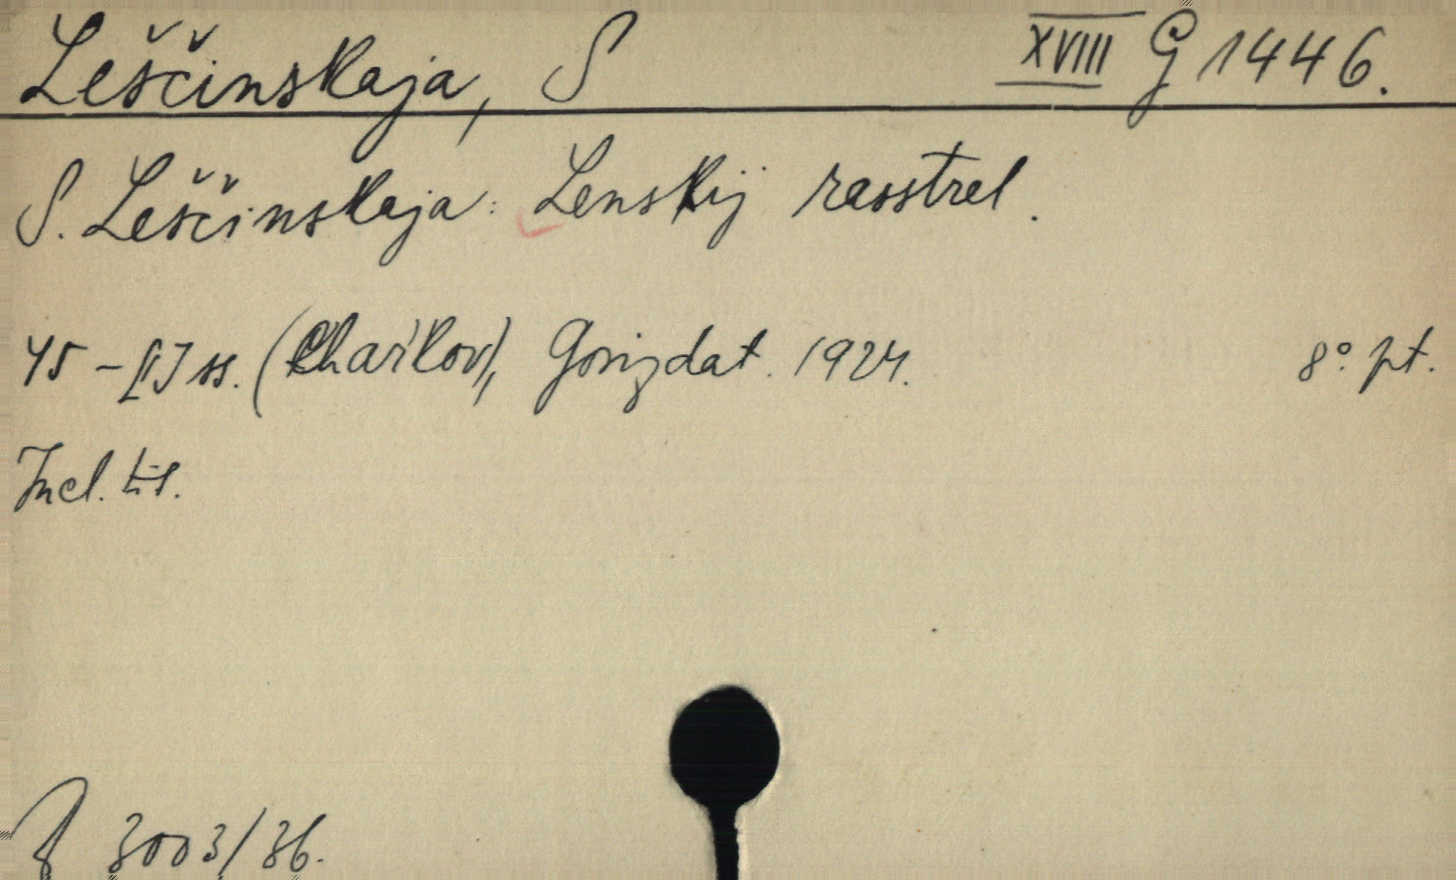 Leščinskaja, S XVIII G 1446.
S. Leščinskaja: Lenskij rasstrel.
45 - [1] ss. (Char'kov), Gosizdat. 1924. 8° pt.
Incl. tit.
3003/36.